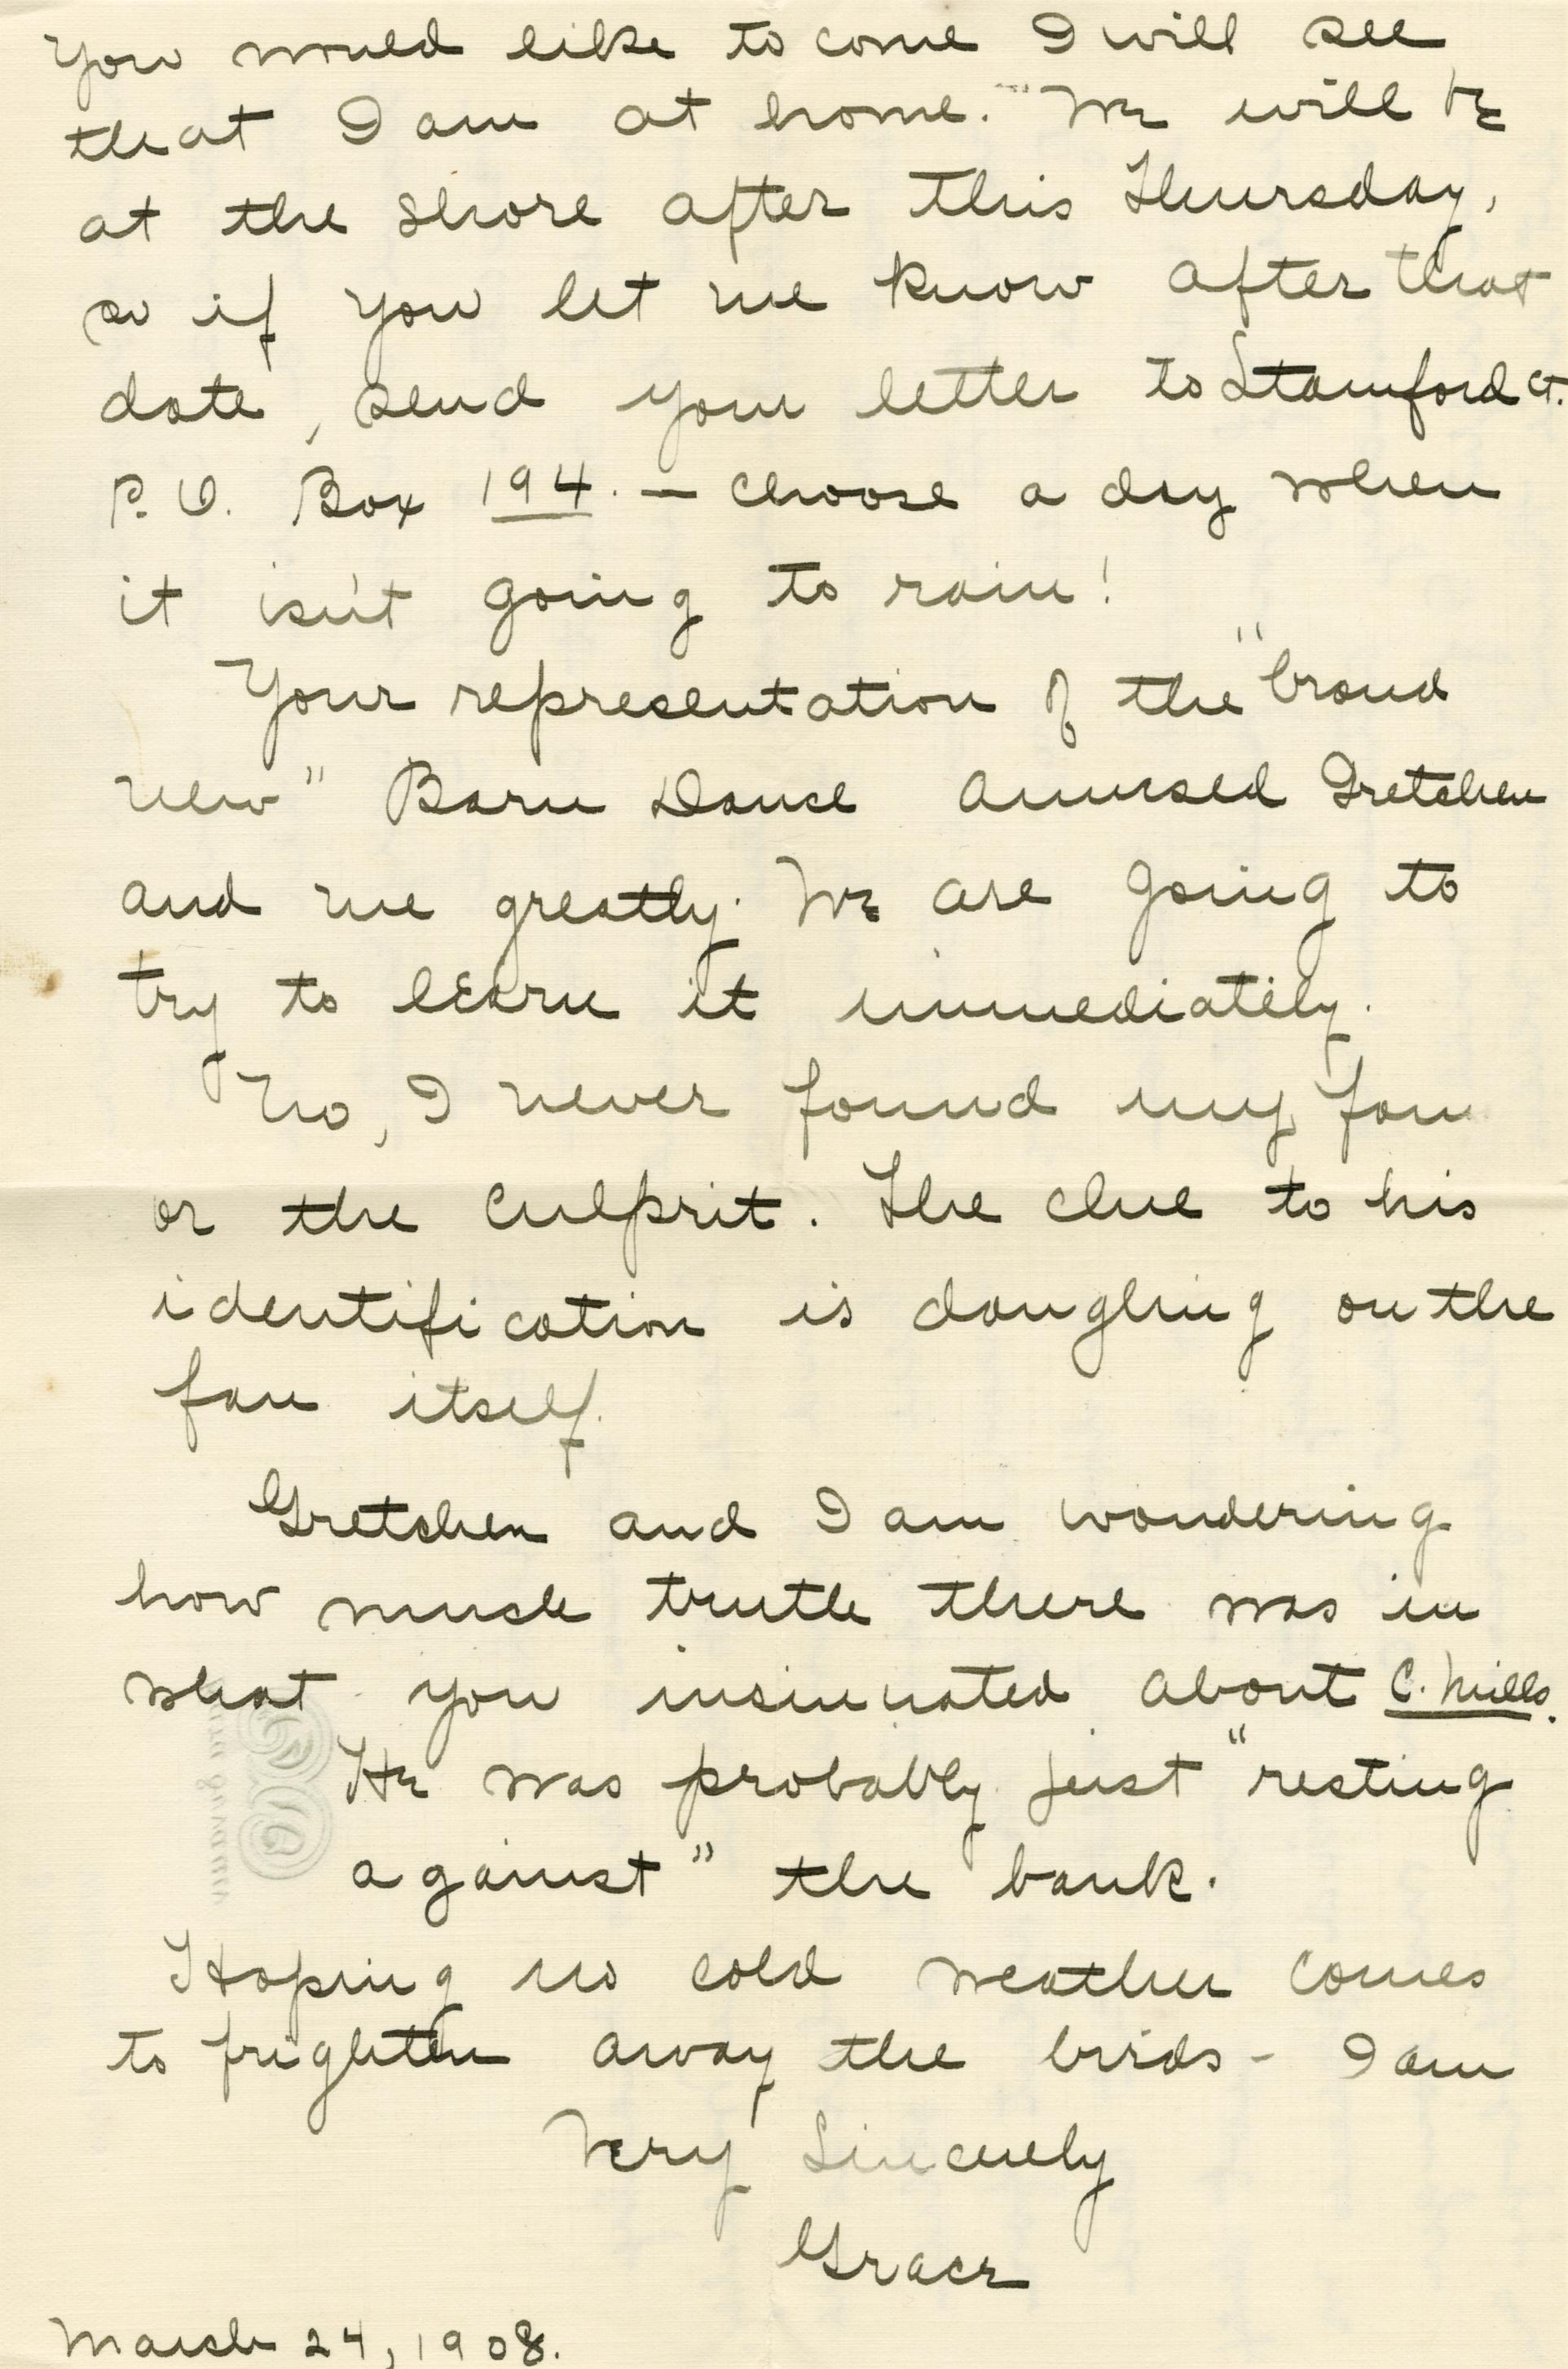 you would like to come I will see
that I am at home." We will be
at the shore after this Thursday,
so if you let me know after that
date, send your letter to Stamford Ct.
P.O. Box 194. — Choose a day when
it isn't going to rain!
Your representation of the "brand
new" Barn Dance amused Gretchen
and me greatly. We are going to
try to learn it immediately.
No, I never found my fan
or the culprit. The clue to his
identification is dangling on the
fan itself.
Gretchen and I am wondering
how much truth there was in
what you insinuated about C. Mills.
He was probably just "resting
against" the bank.
Hoping no cold weather comes
to frighten away the birds - I am
Very Sincerely
Grace
March 24, 1908.